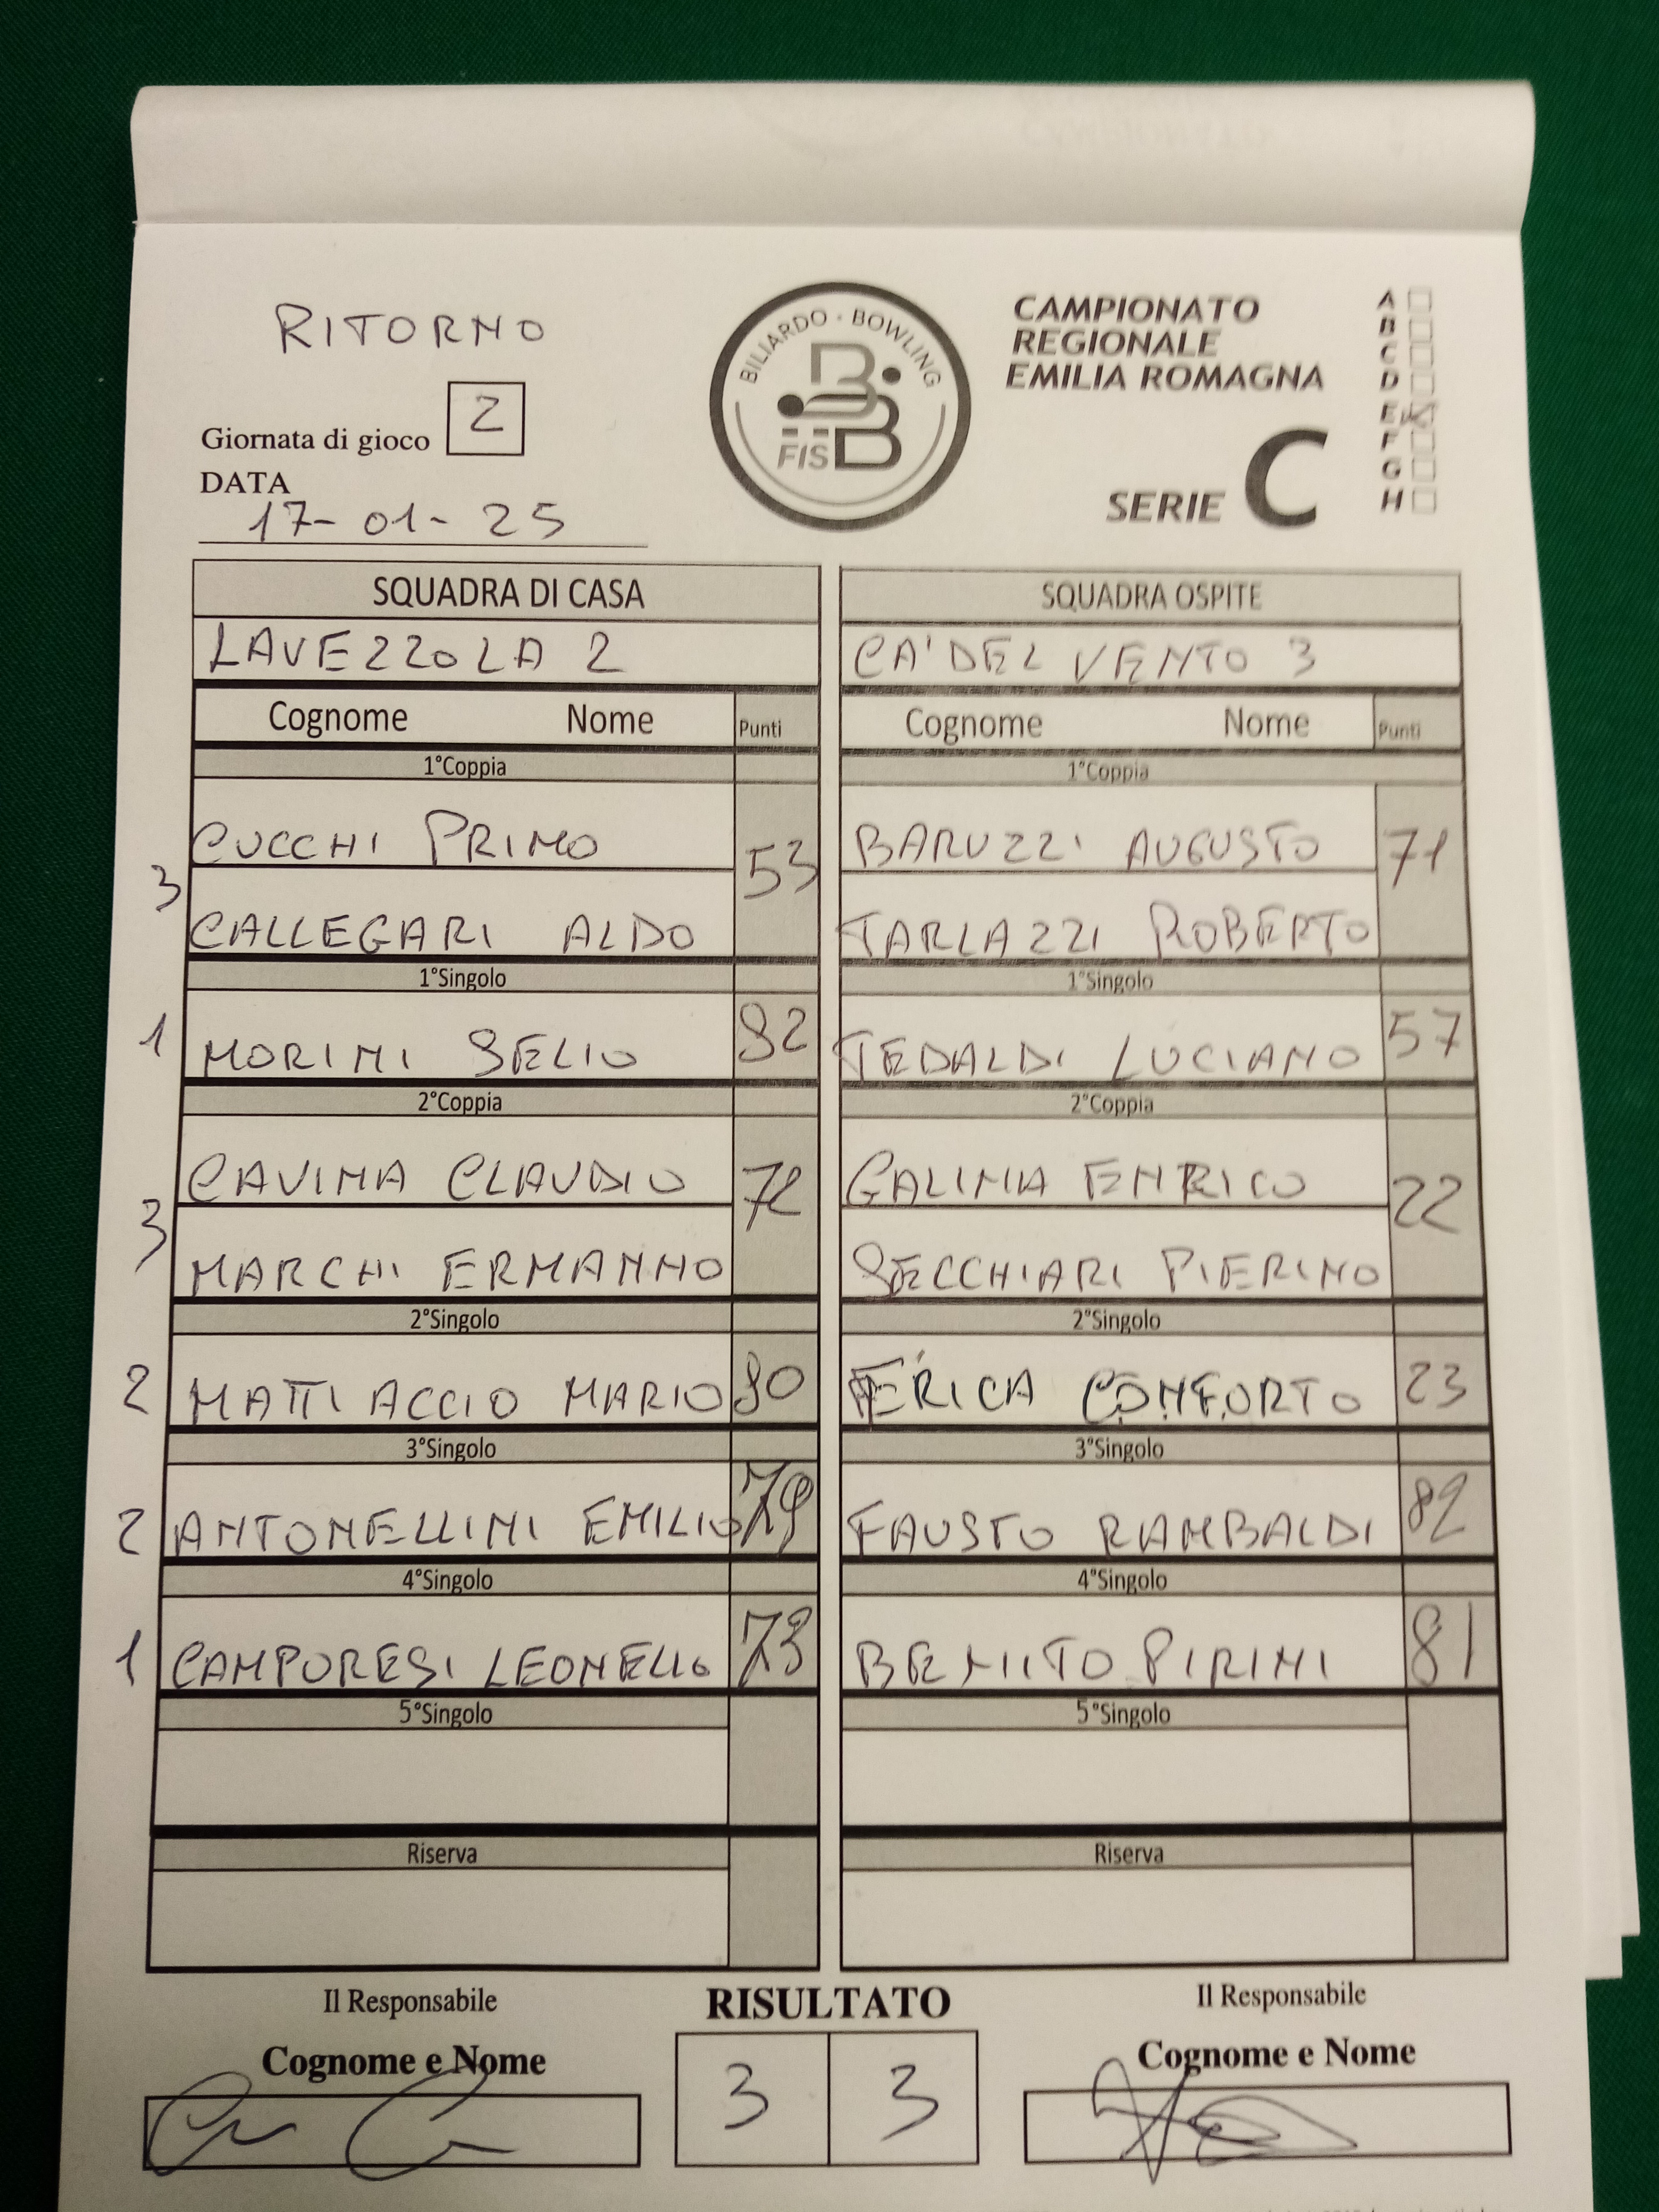 RITORNO
BILIARDO · BOWLING
FISBB
CAMPIONATO
REGIONALE
EMILIA ROMAGNA
SERIE C
A
B
C
D
E
F
G
H
Giornata di gioco 2
DATA
17-01-25
SQUADRA DI CASA
LAVEZZOLA 2
Cognome Nome Punti
1°Coppia
3
CUCCHI PRIMO
53
CALLEGARI ALDO
1°Singolo
1 MORINI SELIO 82
2°Coppia
3
CAVINA CLAUDIO
72
MARCHI ERMANNO
2°Singolo
2 MATTIACCIO MARIO 80
3°Singolo
2 ANTONELLINI EMILIO 79
4°Singolo
1 CAMPORESI LEONELLO 73
5°Singolo
Riserva
SQUADRA OSPITE
CA'DEL VENTO 3
Cognome Nome Punti
1°Coppia
BARUZZI AUGUSTO
71
TARLAZZI ROBERTO
1°Singolo
TEDALDI LUCIANO 57
2°Coppia
GALINIA ENRICO
22
SECCHIARI PIERINO
2°Singolo
ERICA CONFORTO 23
3°Singolo
FAUSTO RAMBALDI 82
4°Singolo
BENITO PIRINI 81
5°Singolo
Riserva
Il Responsabile
Cognome e Nome
RISULTATO
3 3
Il Responsabile
Cognome e Nome